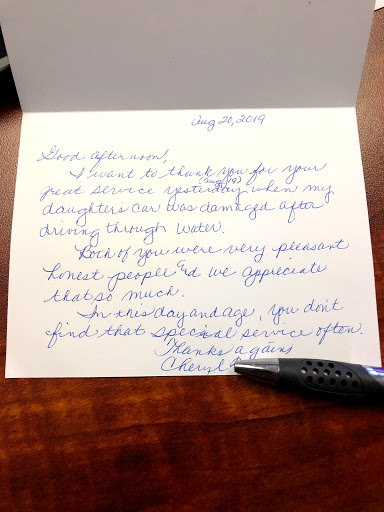 Aug 20, 2019
Good afternoon,
I want to thank you for your
(Aug 19)
great service yesterday when my
daughter's car was damaged after
driving through water.
Both of you were very pleasant
honest people and we appreciate
that so much.
In this day and age, you don't
find that special service often.
Thanks again
Cheryl